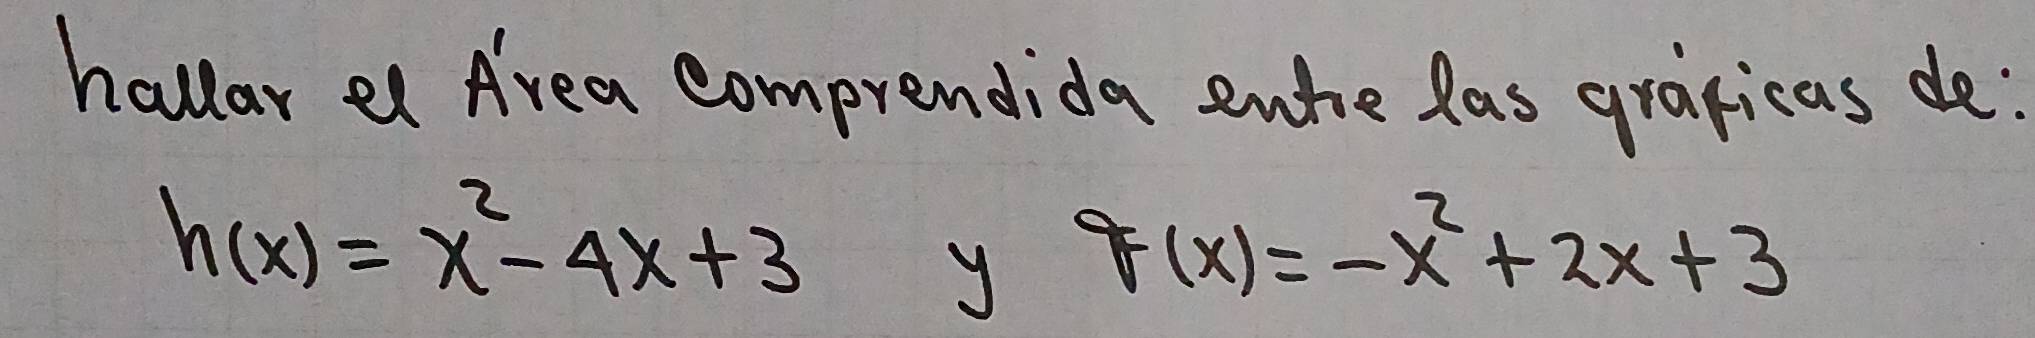 hallar el Área Comprendida entre las gráficas de:
h(x) = x² - 4x + 3 y f(x) = -x² + 2x + 3